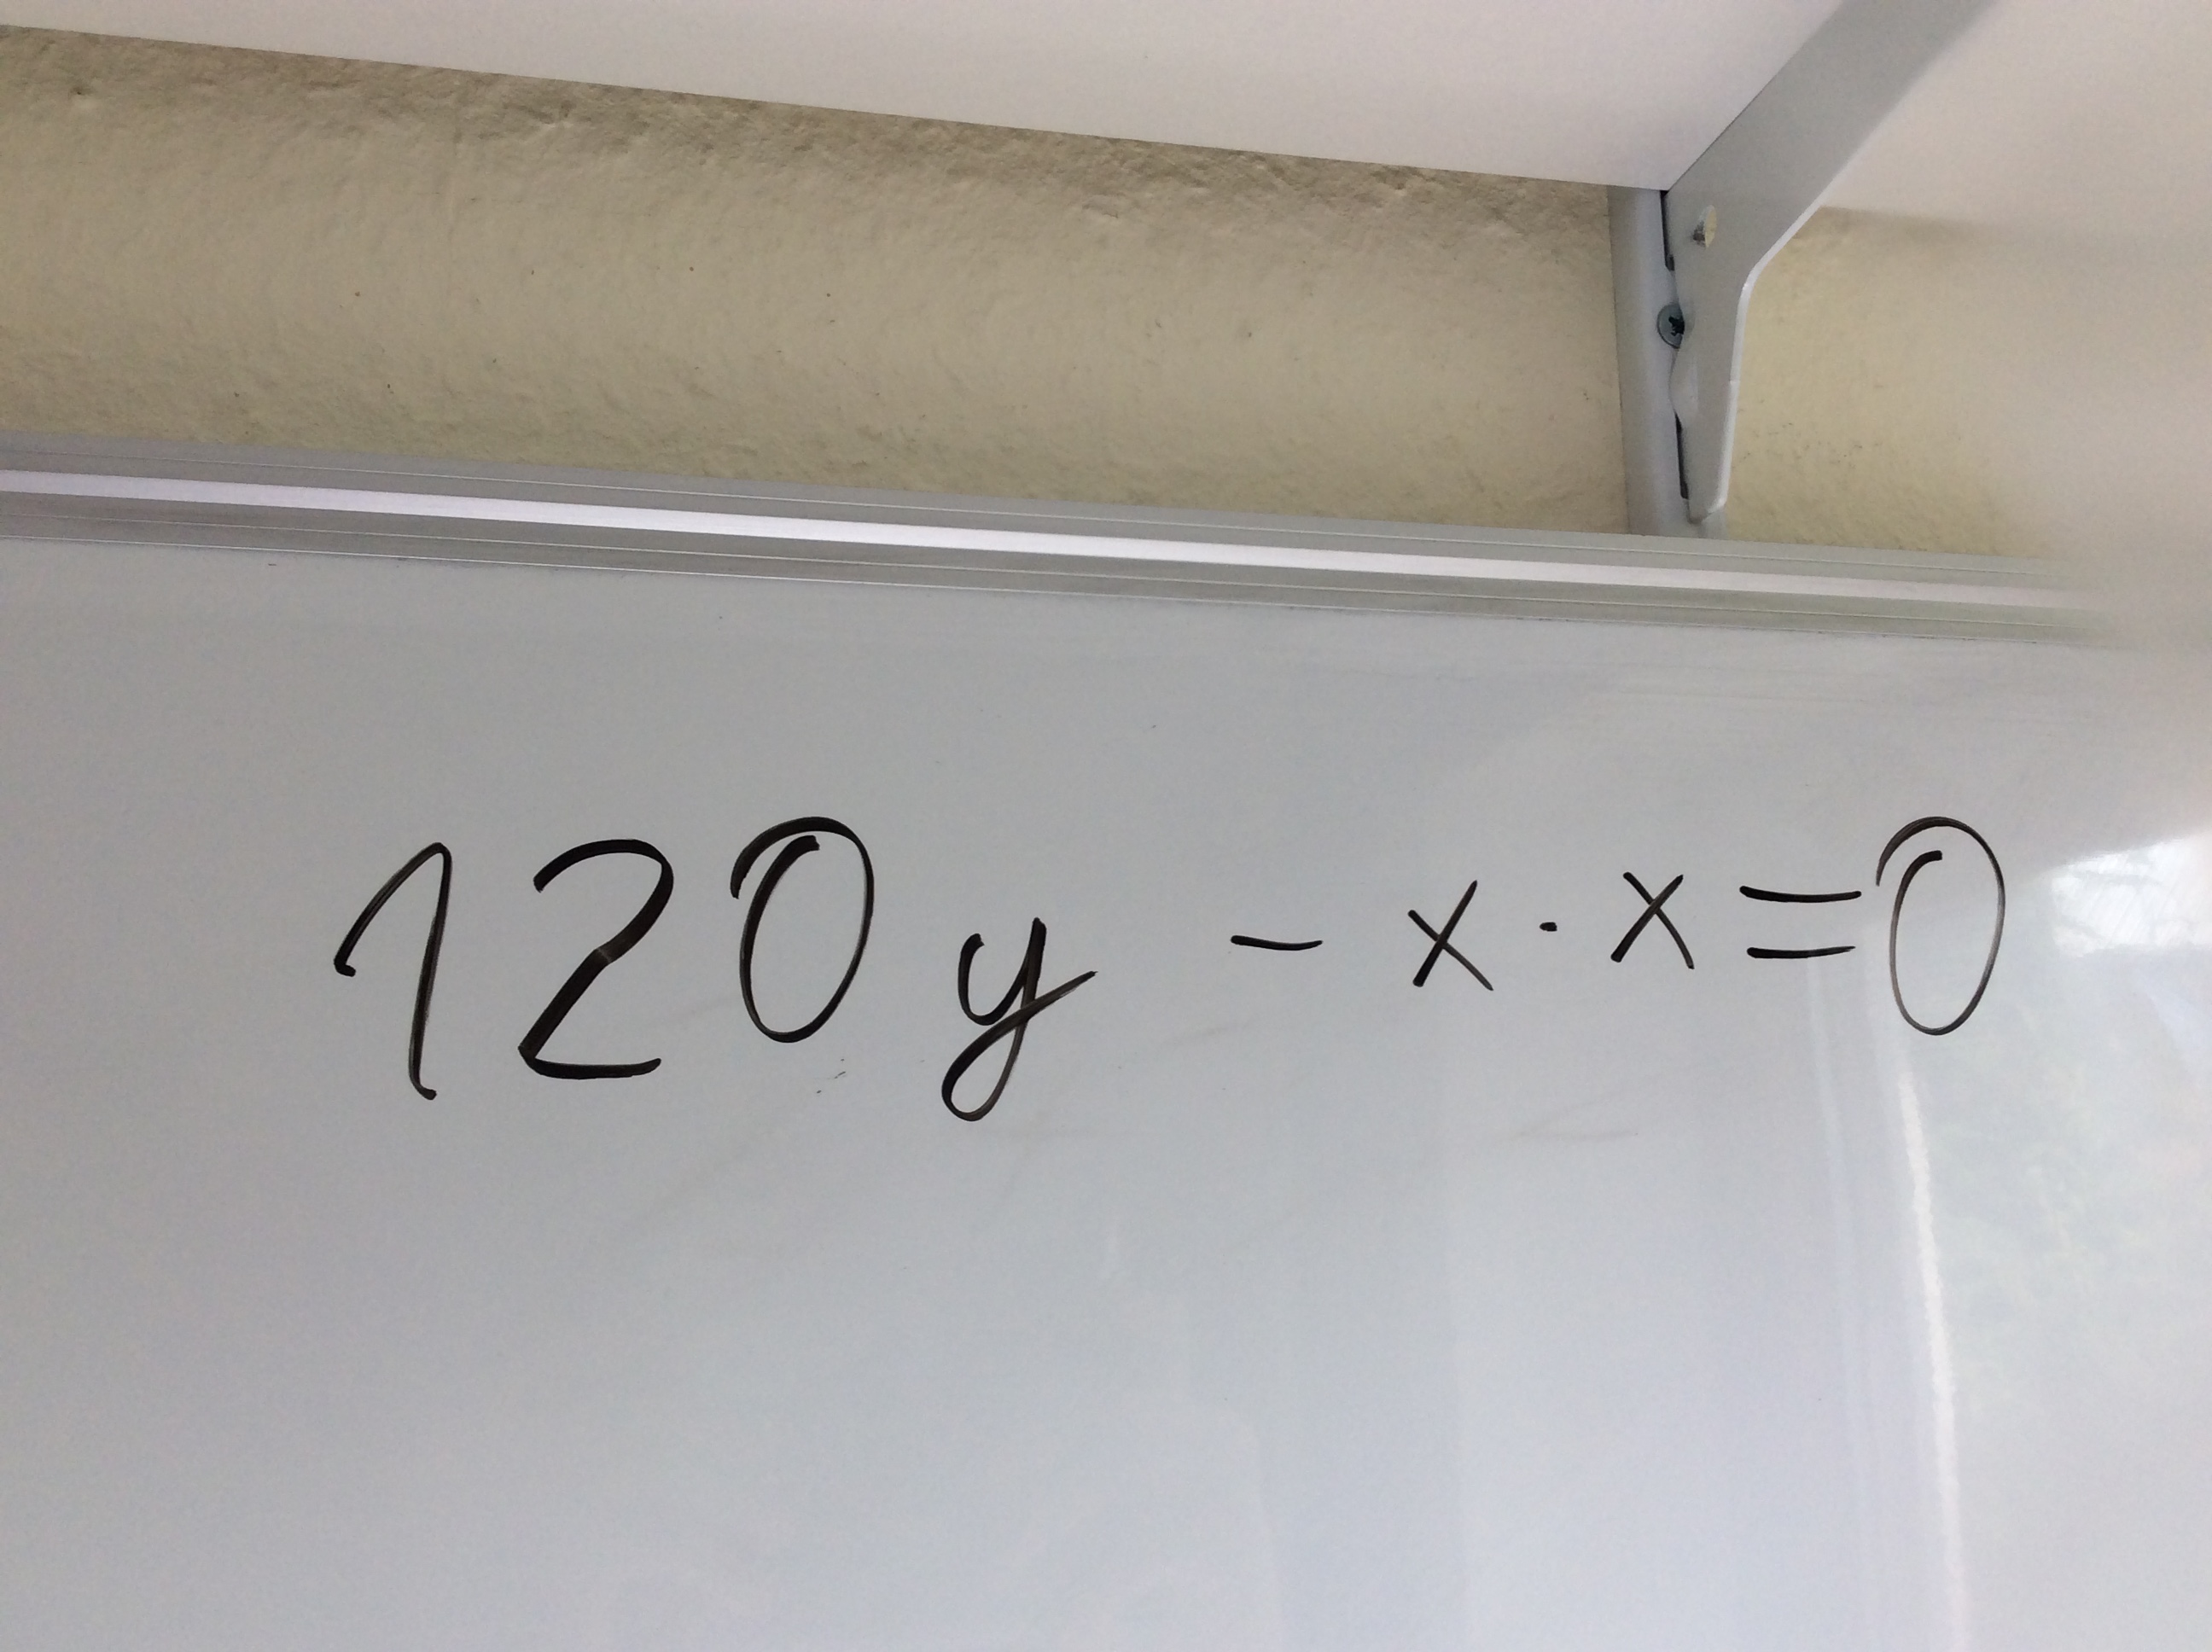 120y - x · x = 0